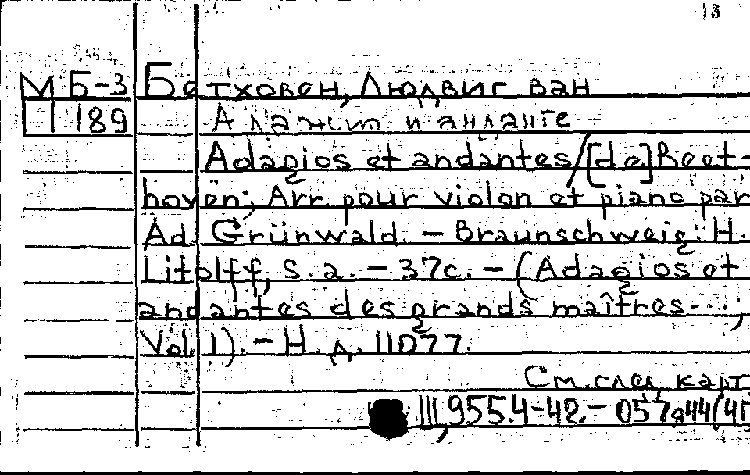 13
М Б-3 Бетховен, Людвиг ван
П 189 Адажио и анданте
Adagios et andantes/[de] Beet-
hoven; Arr. pour violon et piano par
Ad. Grünwald. - Braunschweig: H.
Litolff, s. a. - 37c. - (Adagios et
andantes des grands maîtres...;
Vol. 1). - Н. д. 11077.
См. след. карт.
III,955.4-42.-